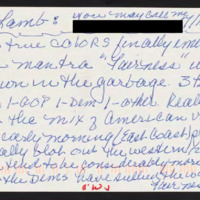 Lamb: you may call me
true COLORS finally em
mantra "fairness" i
in the garbage. 3 
1-GOP 1-Dem 1-other heal
the mix z American v
early morning (East Coast) p
ally blot out the western/
tend to be considerably more
the Dems have sullied the wo
fairness